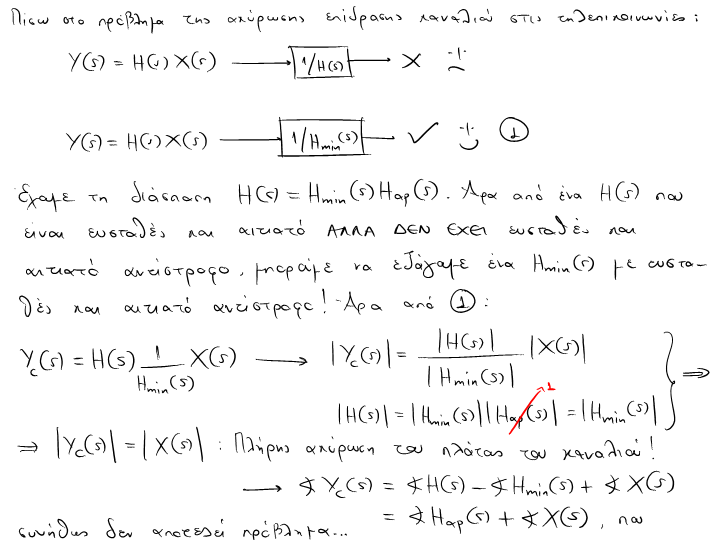 Πίσω στο πρόβλημα της ακύρωσης επίδρασης καναλιού στις τηλεπικοινωνίες:
Y(s) = H(s) X(s) ⟶ 1/H(s) ⟶ X :(
Y(s) = H(s) X(s) ⟶ 1/Hmin(s) ⟶ ✓ :) ①
Έχουμε τη διάσπαση H(s) = Hmin(s) Hap(s). Άρα από ένα H(s) που
είναι ευσταθές και αιτιατό ΑΛΛΑ ΔΕΝ ΕΧΕΙ ευσταθές και
αιτιατό αντίστροφο, μπορούμε να εξάγουμε ένα Hmin(s) με ευστα-
θές και αιτιατό αντίστροφο! Άρα από ①:
Yc(s) = H(s) 1/Hmin(s) X(s) ⟶ |Yc(s)| = |H(s)|/|Hmin(s)| |X(s)|
|H(s)| = |Hmin(s)| |Hap(s)| 1 = |Hmin(s)| } ⇒
⇒ |Yc(s)| = |X(s)| : Πλήρης ακύρωση του πλάτους του καναλιού!
⟶ ∢Yc(s) = ∢H(s) − ∢Hmin(s) + ∢X(s)
= ∢Hap(s) + ∢X(s), που
συνήθως δεν αποτελεί πρόβλημα...